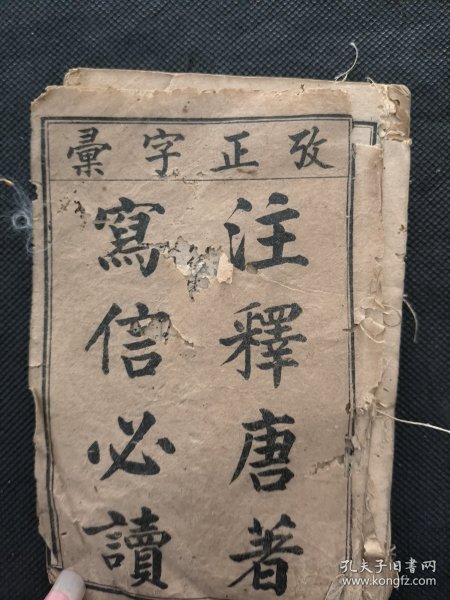 攷正字彙
注釋唐著
寫信必讀
孔夫子旧书网
www.kongfz.com